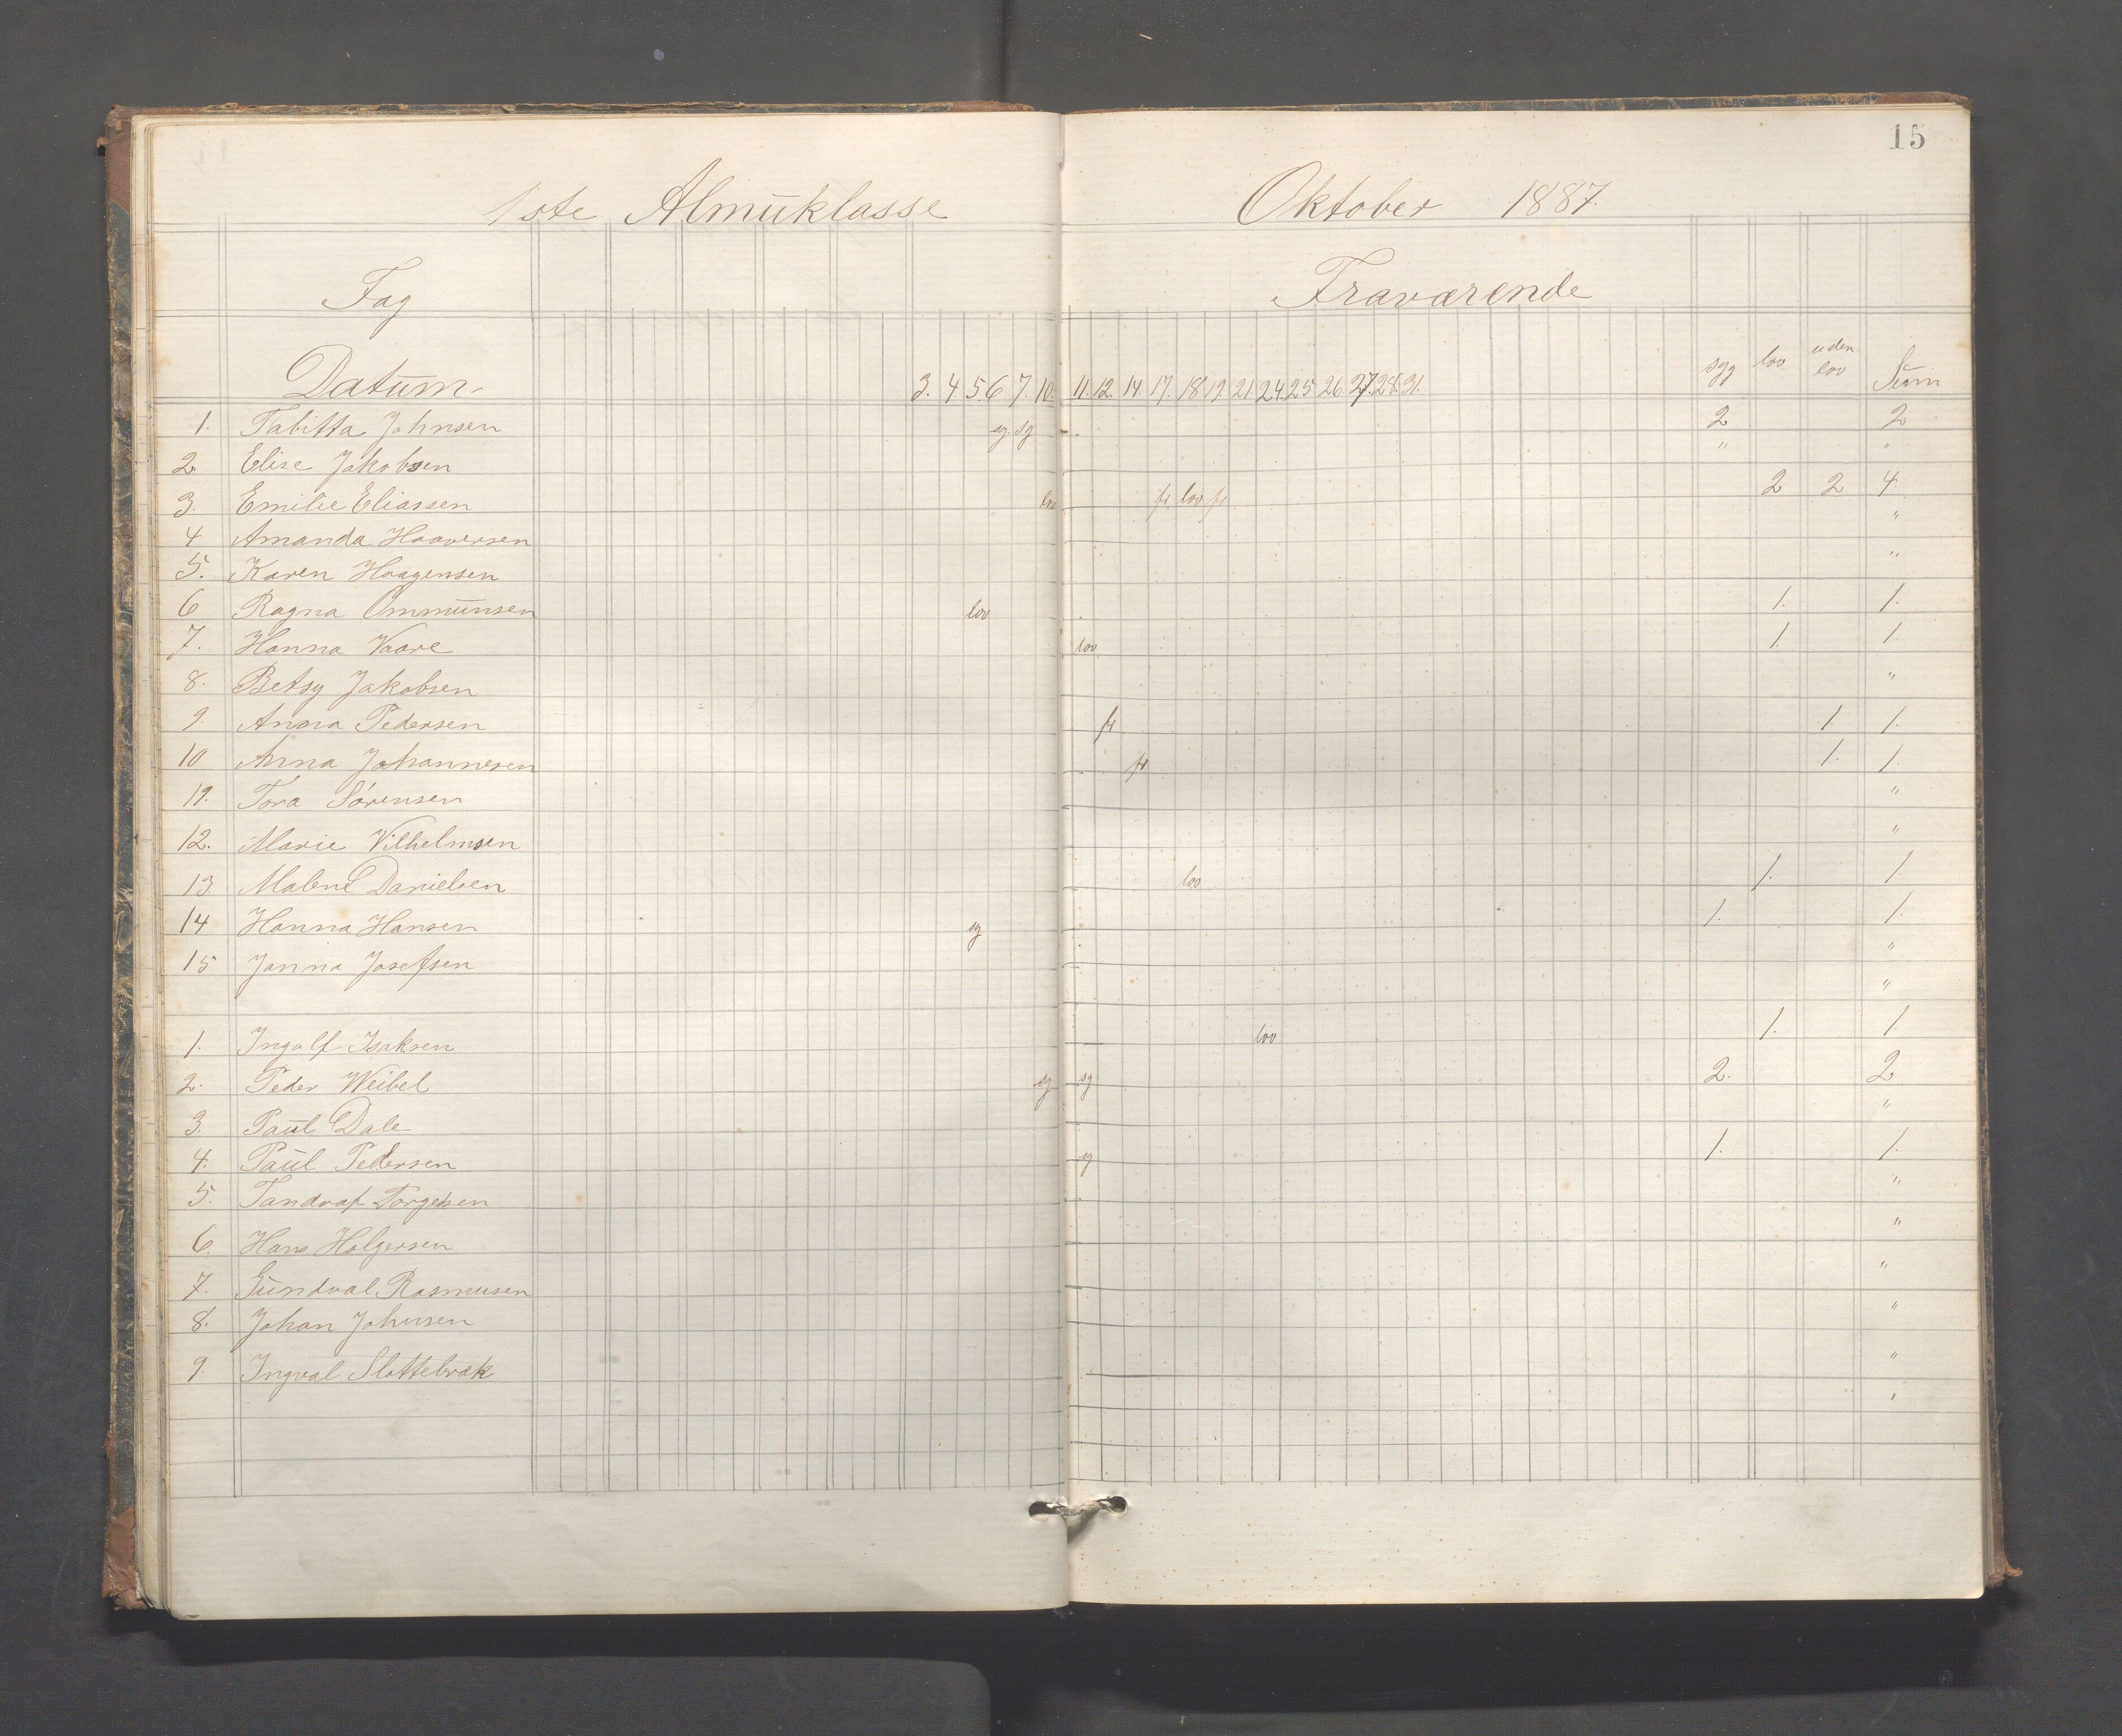 15
1ste Almuklasse Oktober 1887.
Fag Fraværende
Datum 3. 4 5. 6 7. 10. 11. 12. 14. 17. 18 19. 21. 24. 25 26. 27. 28. 31. syg lov uden lov Sum
1. Tabitta Johnsen sg. sg 2 2
2. Elise Jakobsen " "
3. Emilie Eliassen lov fr. lov fr. 2 2 4.
4 Amanda Haaversen "
5. Karen Haagensen "
6 Ragna Ommunsen lov 1. 1.
7. Hanna Vaare lov 1. 1.
8. Betsy Jakobsen "
9. Anna Pedersen fr 1 1.
10 Anna Johannesen fr 1. 1.
19. Tora Sørensen "
12. Marie Vilhelmsen "
13 Malene Danielsen lov 1. 1
14 Hanna Hansen sg 1. 1.
15 Janna Josefsen "
"
1. Ingolf Isaksen lov 1. 1.
2. Peder Weibel sg sg 2. 2
3. Paul Dale "
4. Paul Pedersen sg 1. 1.
5. Tandraf Torgersen "
6. Hans Holgersen "
7. Gundval Rasmusen "
8. Johan Johnsen "
9. Ingval Slottebrak "
"